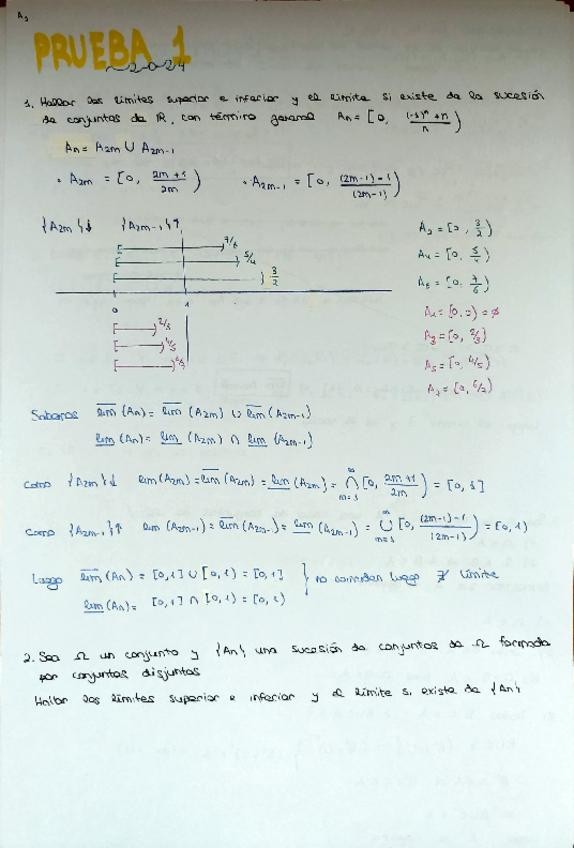 A₂
PRUEBA 1
2024
1. Hallar los límites superior e inferior y el límite si existe de la sucesión
de conjuntos de ℝ, con término general An = [0, ((-1)ⁿ + n)/n)
An = A2m ∪ A2m-1
· A2m = [0, (2m+1)/2m)    · A2m-1 = [0, ((2m-1)-1)/(2m-1))
{A2m}↓    {A2m-1}↑
7/6
5/4
3/2
0    1
2/3
4/5
6/7
A2 = [0, 3/2)
A4 = [0, 5/4)
A6 = [0, 7/6)
A1 = [0,0) = ∅
A3 = [0, 2/3)
A5 = [0, 4/5)
A7 = [0, 6/7)
Sabemos lim̅ (An) = lim̅ (A2m) ∪ lim̅ (A2m-1)
lim̲ (An) = lim̲ (A2m) ∩ lim̲ (A2m-1)
Como {A2m}↓ lim (A2m) = lim̅ (A2m) = lim̲ (A2m) = ∞⋂m=1 [0, (2m+1)/2m) = [0, 1]
Como {A2m-1}↑ lim (A2m-1) = lim̅ (A2m-1) = lim̲ (A2m-1) = ∞⋃m=1 [0, ((2m-1)-1)/(2m-1)) = [0, 1)
Luego lim̅ (An) = [0,1] ∪ [0,1) = [0,1]
lim̲ (An) = [0,1] ∩ [0,1) = [0,1)
} no coinciden luego ∄ límite
2. Sea Ω un conjunto y {An} una sucesión de conjuntos de Ω formada
por conjuntos disjuntos
Hallar los límites superior e inferior y el límite si existe de {An}